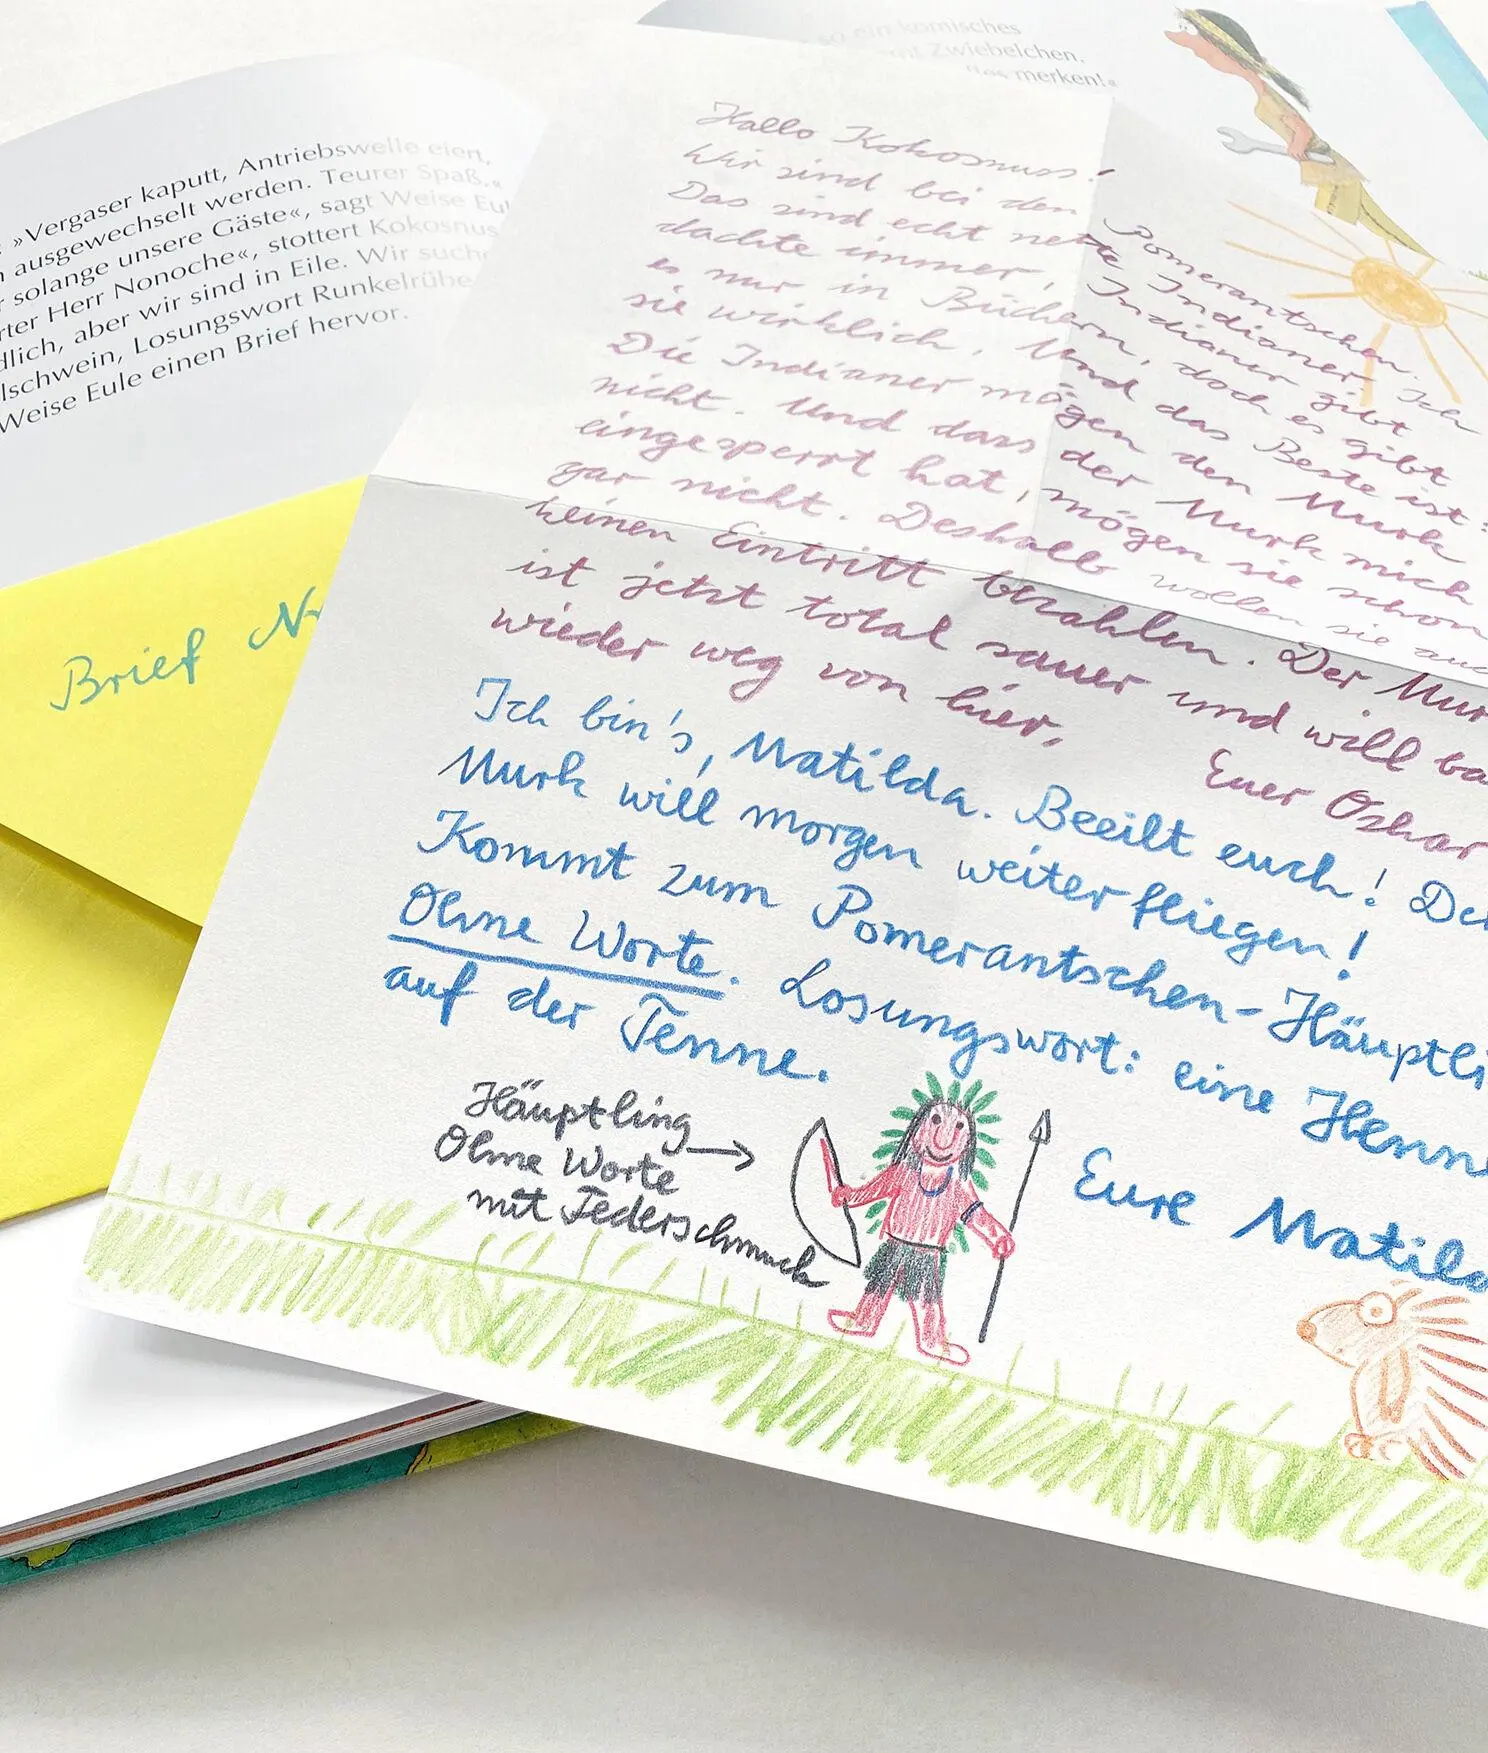 so ein komisches
Zwiebelchen.
merken!«
»Vergaser kaputt, Antriebswelle eiert,
ausgewechselt werden. Teurer Spaß.«
solange unsere Gäste«, sagt Weise Eu
rter Herr Nonoche«, stottert Kokosnus
dlich, aber wir sind in Eile. Wir such
lschwein, Losungswort Runkelrübe
Weise Eule einen Brief hervor.
Brief N
Hallo Kokosnuss!
Wir sind bei den Pomerantschen.
Das sind echt nette Indianer. Ich
dachte immer, Indianer gibt
es nur in Büchern, doch es gibt
sie wirklich. Und das Beste ist:
Die Indianer mögen den Murk
nicht. Und dass der Murk mich
eingesperrt hat, mögen sie schon
gar nicht. Deshalb wollen sie auc
keinen Eintritt bezahlen. Der Mur
ist jetzt total sauer und will ba
wieder weg von hier.
Euer Oskar
Ich bin's, Matilda. Beeilt euch! Der
Murk will morgen weiterfliegen!
Kommt zum Pomerantschen-Häuptli
Ohne Worte. Losungswort: eine Henne
auf der Tenne.
Eure Matilda
Häuptling
Ohne Worte
mit Federschmuck